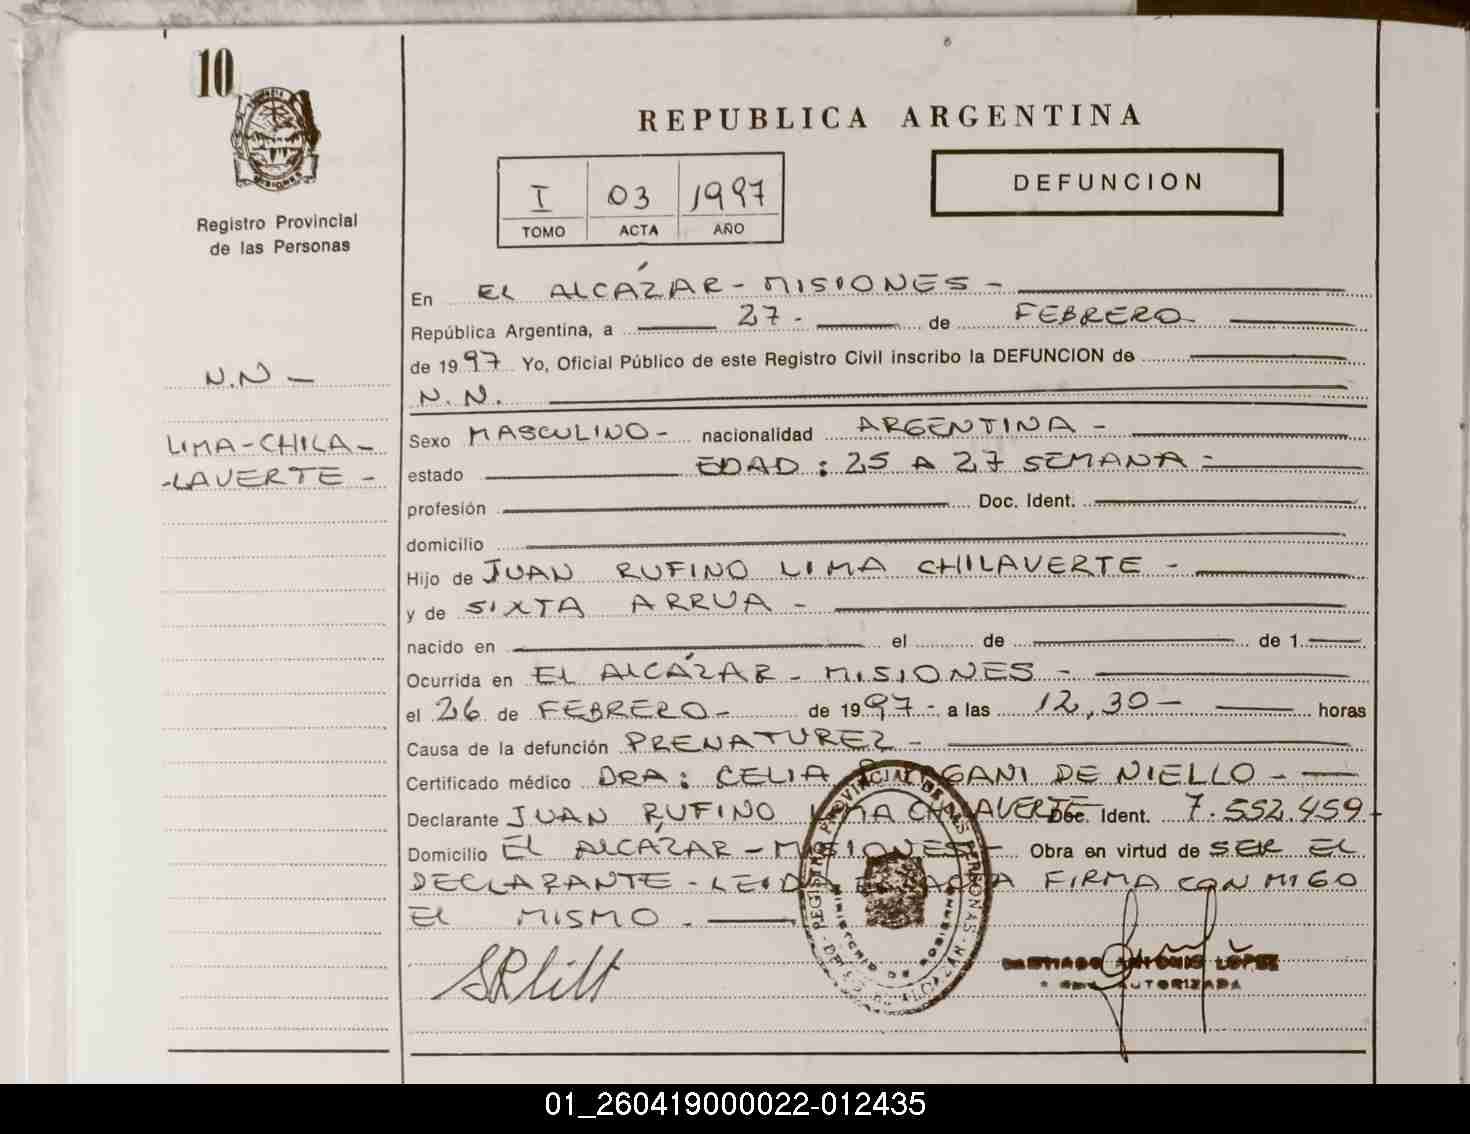 10
Registro Provincial
de las Personas
REPUBLICA ARGENTINA
I 03 1997
TOMO ACTA AÑO
DEFUNCION
En EL ALCÁZAR - MISIONES -
República Argentina, a 27 - de FEBRERO
de 1997 Yo, Oficial Público de este Registro Civil inscribo la DEFUNCION de
N. N.
N.N -
LIMA-CHILA-
-LAVERTE -
Sexo MASCULINO - nacionalidad ARGENTINA -
estado EDAD : 25 A 27 SEMANA -
profesión Doc. Ident.
domicilio
Hijo de JUAN RUFINO LIMA CHILAVERTE -
y de SIXTA ARRUA -
nacido en el de de 1
Ocurrida en EL ALCÁZAR - MISIONES -
el 26 de FEBRERO - de 1997 - a las 12,30 - horas
Causa de la defunción PRENATUREZ -
Certificado médico DRA: CELIA DE NIELLO -
Declarante JUAN RUFINO LIMA CHILAVERTE Doc. Ident. 7.552.459
Domicilio EL ALCÁZAR - MISIONES - Obra en virtud de SER EL
DECLARANTE - LEIDA EL ACTA FIRMA CON MIGO
EL MISMO -
REGISTRO PROVINCIAL DE LAS PERSONAS
MINISTERIO DE GOBIERNO
SANTIAGO ANTONIO LÓPEZ
AUTORIZADA
01_260419000022-012435